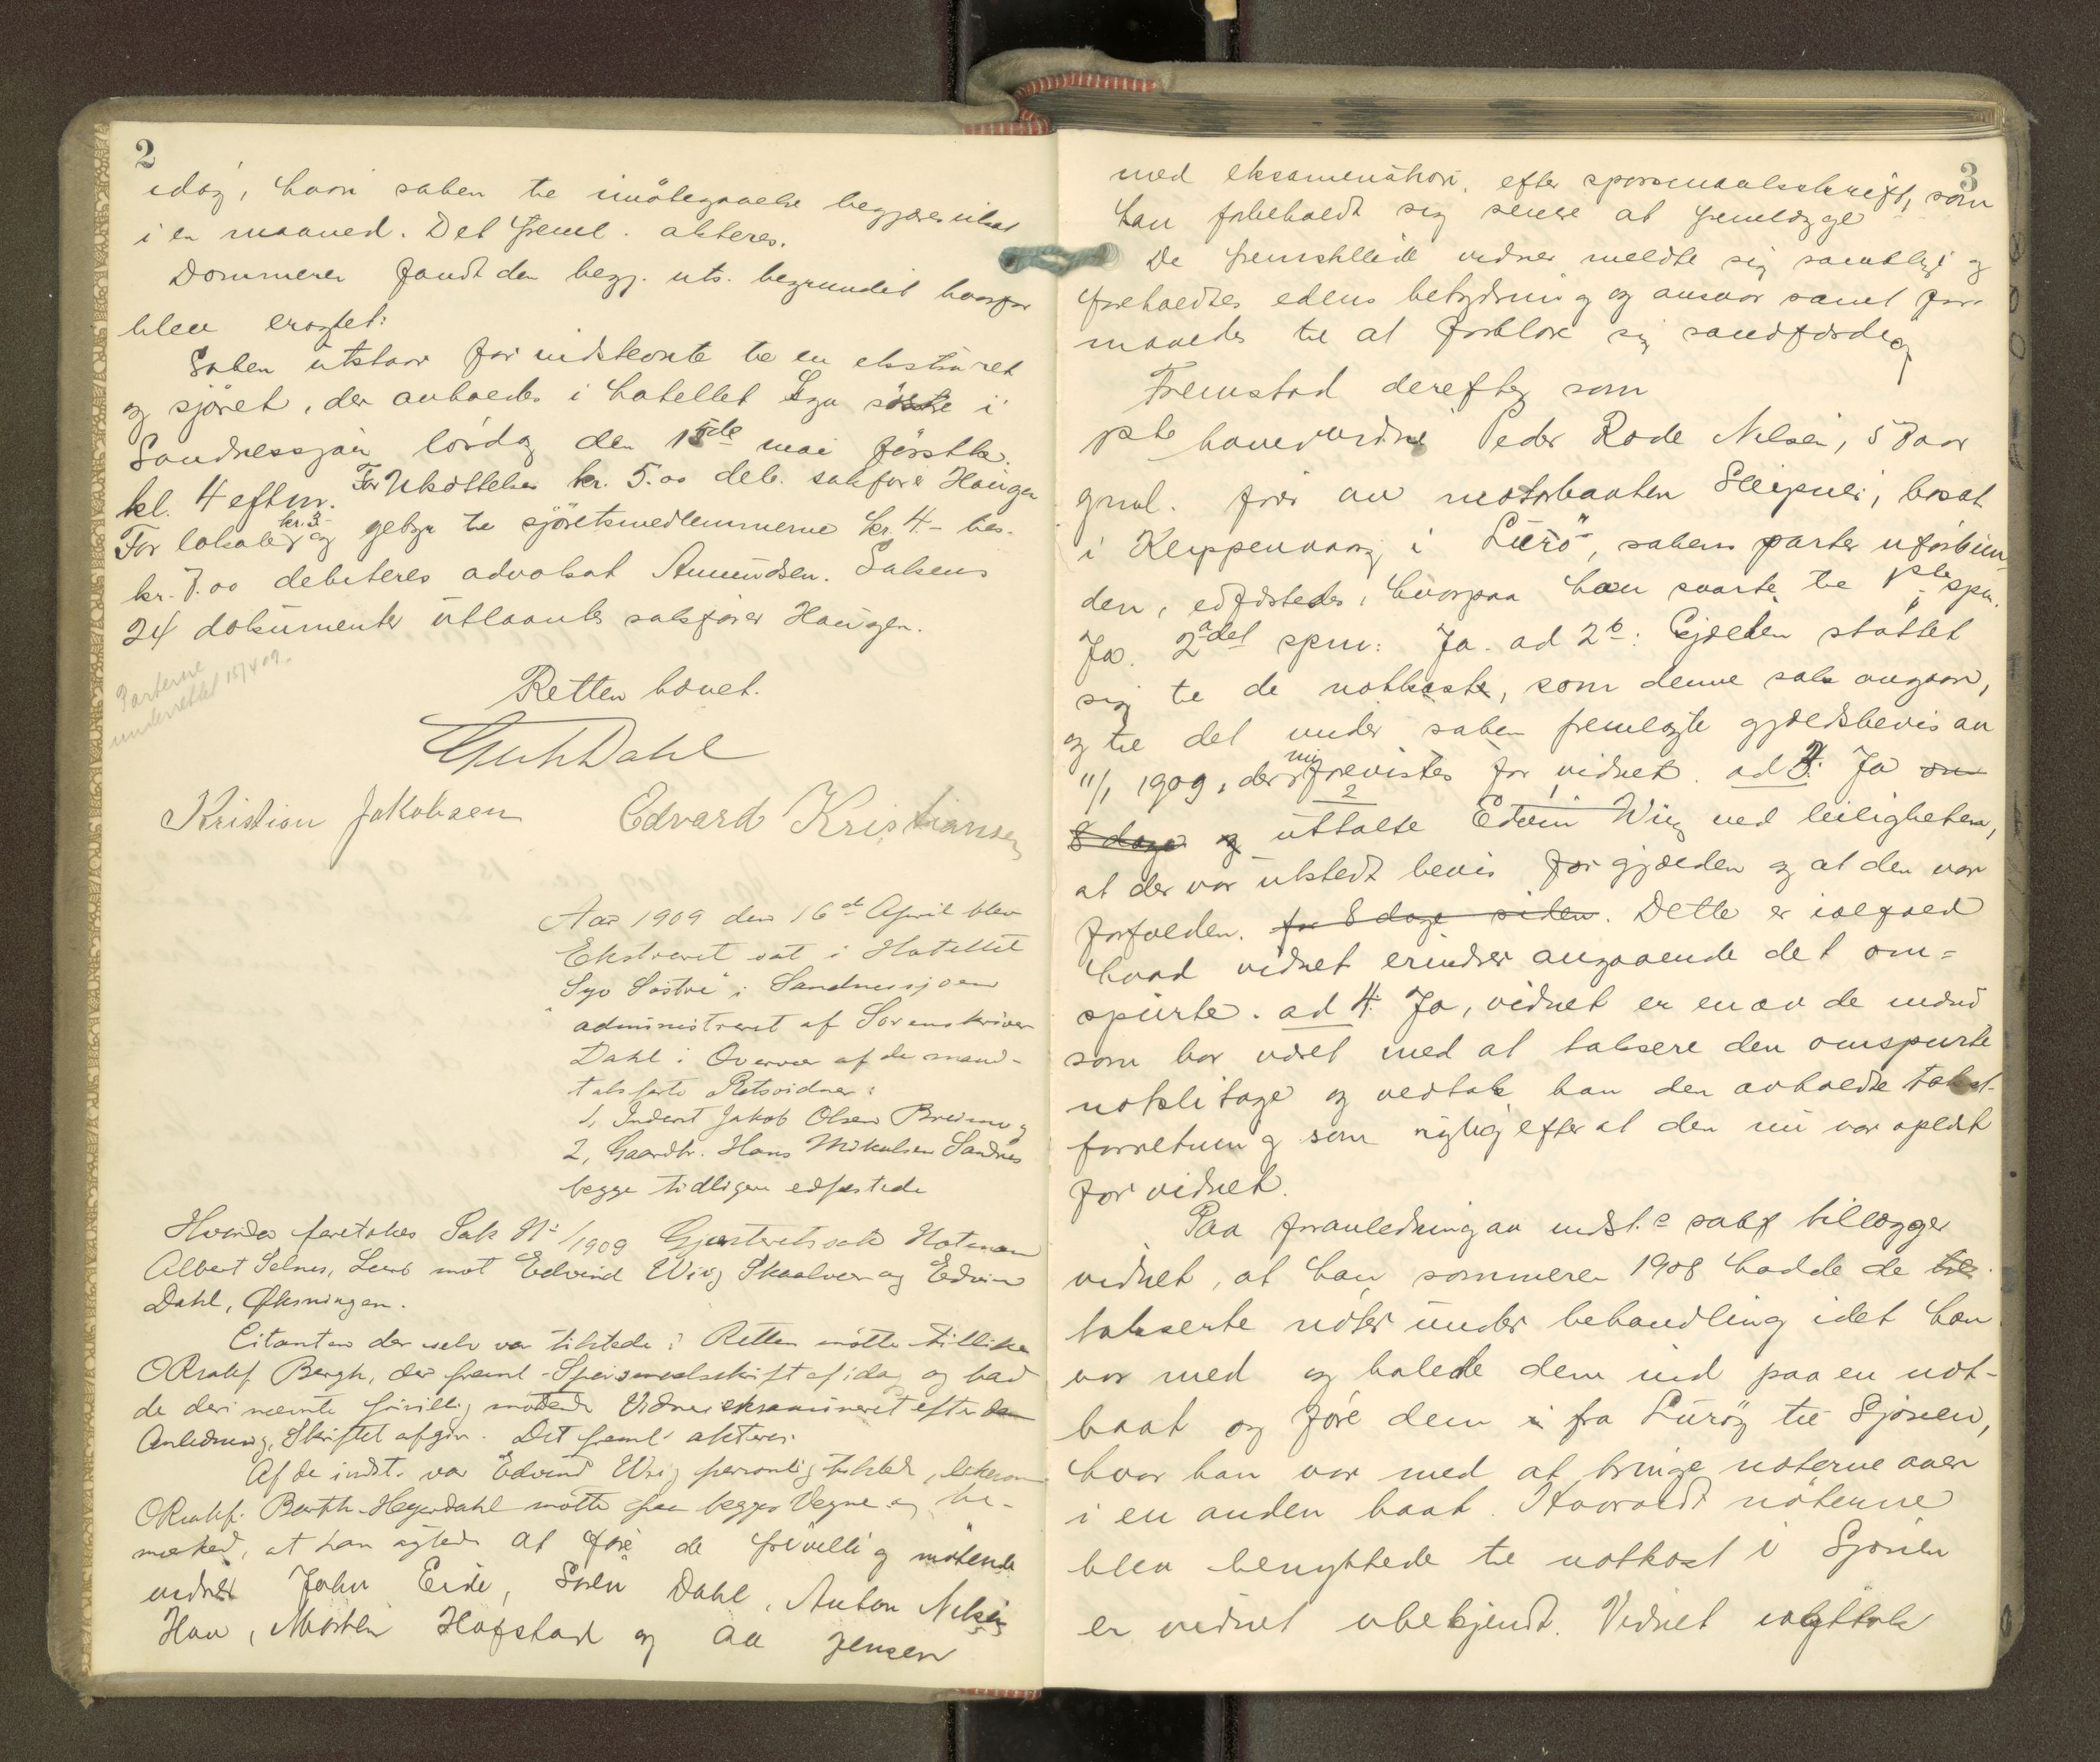 2
idag, hvori saken til imøtegaaelse begjæres utsat
i en maaned. Det freml. akteres.
Dommeren fandt den begj. uts. begrundet hvorfor
blev eragtet:
Saken utstaar for indstevnte til en ekstraret
og sjøret, der avholdes i hotellet Syv søstre i
Sandnessjøen lørdag den 15de mai førstk.
kl. 4 efterm. For Utsættelse kr. 5.00 deb. sakfører Haugen
For lokaler kr. 3- og gebyr til sjøretsmedlemmerne kr. 4- tils.
kr. 7.00 debiteres advokat Amundsen. Sakens
24 dokumenter utlaantes sakfører Haugen.
Parterne
underrettet 15/4 09.
Retten hævet.
Dahl
Kristian Jakobsen Edvard Kristiansen
Aar 1909 den 16de April blev
Ekstraret sat i Hotellet
"Syv Søstre" i Sandnessjøen
administreret af Sorenskriver
Dahl i Overvær af de mand-
talsførte Retsvidner:
1, Inderst Jakob Olsen Breimo og
2, Gaardbr. Hans Mikalsen Sandnes
begge tidligere edfæstede
Hvorda foretokes Sak No /1909 Gjesteretssak Notmann
Albert Selnes, Leirb mot Edvind Wiig Skaalvær og Edvin
Dahl, Øksningen.
Citanten der selv var tilstede i Retten møtte tillike
ORsakf Bergh, der freml. Spørsmaalsskrift af idag og bad
de deri nævnte frivillig møtende Vidner eksamineret efter den
Anledning, Skriftet afgir. Det freml. akteres.
Af de indst. var Edvind Wiig personlig tilstede, likesom
ORsakf. Barth-Heyerdahl møtte paa begges Vegne og be-
mærked, at han agted at føre de frivillig møtende
vidner John Eide, Søren Dahl, Anton Nilsen
Hav, Morten Hofstad og Aa Jensen
3
med eksamination. efter spørsmaalsskrift, som
han forbeholdt sig senere at fremlægge
De fremstillede vidner meldte sig samtlige og
foreholdtes edens betydning og ansvar samt for-
manedes til at forklare sig sandfærdig
Fremstod derefter som
1ste hovedvidne Peder Rode Nilsen, 57 aar
gml. fører av motorbaaten Sleipner, bosat
i Kleppenvaag i Lurø, sakens parter uforbun-
den, edfæstedes, hvorpaa han svarte til 1ste spm.
Ja. 2a det spm: Ja. ad 2b: Gjælden støttet
sig til de notkaste, som denne sak angaar,
og til det under saken fremlagte gjældsbevis av
11/1 1909, der nu forevistes for vidnet. ad 3. Ja om
8 dage og uttalte Edvin Wiig ved leiligheten,
at der var utstedt bevis for gjælden og at den var
forfalden. for 8 dage siden. Dette er ialfald
hvad vidnet erindrer angaaende det om-
spurte. ad 4. Ja, vidnet er en av de mænd
som har været med at taksere den omspurte
notslitage og vedtok han den avholdte takst-
forretning som rigtig efter at den nu var oplæst
for vidnet.
Paa foranledning av indst.s sakf tillægger
vidnet, at han sommeren 1908 hadde de til
takserte nøter under behandling idet han
var med og halede dem ind paa en not-
baat og føre dem i fra Lurøy til Sjonen,
hvor han var med at bringe nøterne over
i en anden baat. Hvorvidt nøterne
blev benyttede til notkast i Sjonen
er vidnet ubekjendt. Vidnet iagttok